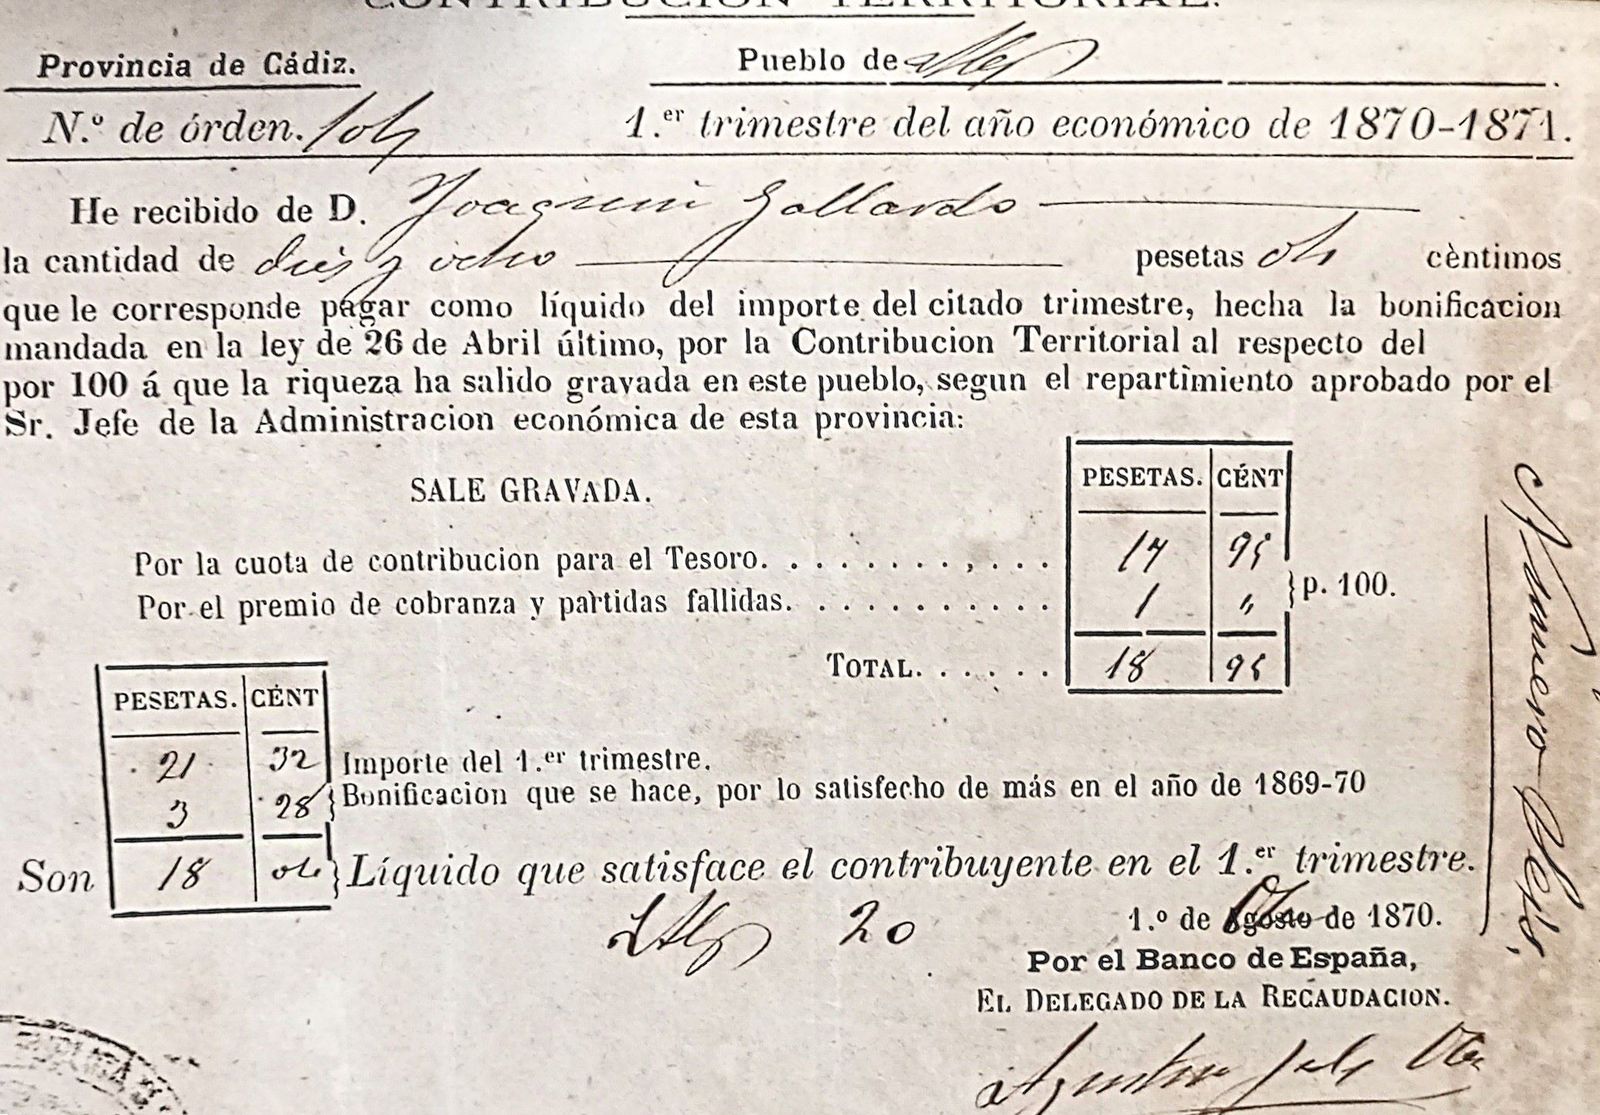 CONTRIBUCION TERRITORIAL.
Provincia de Cádiz.
Pueblo de
N.º de órden.
1.er trimestre del año económico de 1870-1871.
He recibido de D. Joaquin Gallardo
la cantidad de dies y ocho pesetas cèntimos
que le corresponde pagar como líquido del importe del citado trimestre, hecha la bonificacion
mandada en la ley de 26 de Abril último, por la Contribucion Territorial al respecto del
por 100 á que la riqueza ha salido gravada en este pueblo, segun el repartimiento aprobado por el
Sr. Jefe de la Administracion económica de esta provincia:
SALE GRAVADA.
PESETAS. CÉNT
Por la cuota de contribucion para el Tesoro. 17 95
Por el premio de cobranza y partidas fallidas. 1 „
} p. 100.
TOTAL. 18 95
PESETAS. CÉNT
21 32 Importe del 1.er trimestre.
3 28 } Bonificacion que se hace, por lo satisfecho de más en el año de 1869-70
Son 18 04 } Líquido que satisface el contribuyente en el 1.er trimestre.
20 1.º de Agosto de 1870.
Por el Banco de España,
EL DELEGADO DE LA RECAUDACION.
Número